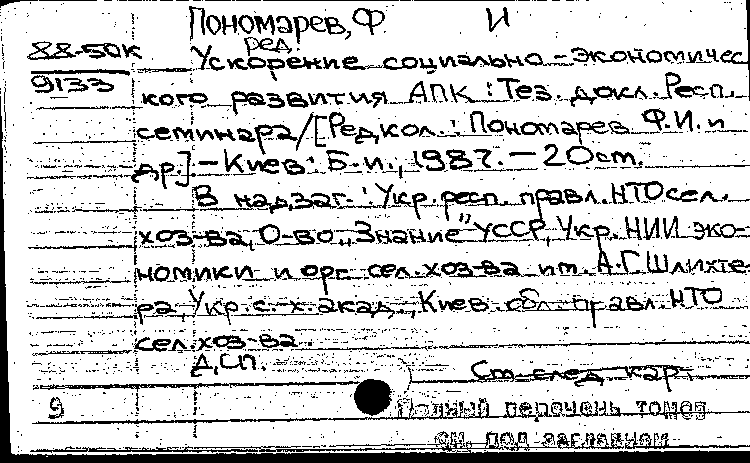 Пономарев, Ф И
ред.
88-50К Ускорение социально-экономичес
9133 кого развития АПК : Тез. докл. Респ.
семинара/[Редкол.: Пономарев Ф.И. и
др.] – Киев : Б.и., 1987. – 20 см.
В надзаг.: Укр. респ. правл. НТО сел.
хоз-ва, О-во „Знание" УССР, Укр. НИИ эко-
номики и орг. сел. хоз-ва им. А.Г. Шлихте-
ра, Укр. с.-х. акад., Киев. обл. правл. НТО
сел. хоз-ва.
Д, СП.
См. след. карт.
9 Полный перечень томов
см. под заглавием